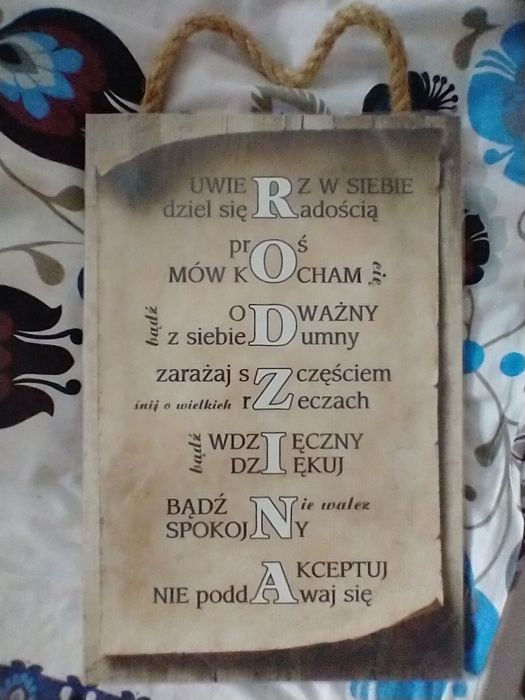 UWIERZ W SIEBIE
dziel się Radością
prOś
MÓW KOCHAM cię
bądź ODWAŻNY
z siebie Dumny
zarażaj sZczęściem
śnij o wielkich rZeczach
bądź WDZIĘCZNY
DZIĘKUJ
BĄDŹ Nie walcz
SPOKOJNY
AKCEPTUJ
NIE poddAwaj się